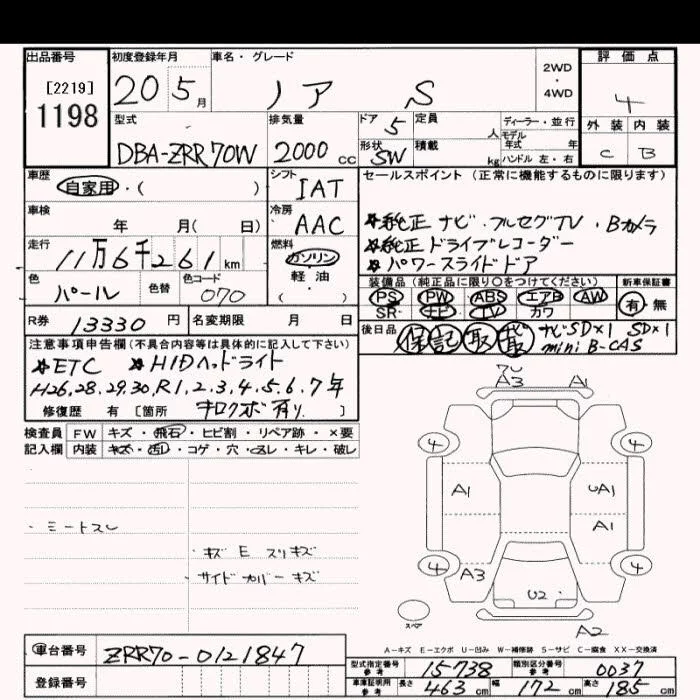 出品番号 初度登録年月 車名・グレード 2WD・4WD 評価点
[2219] 1198 20 5月 ノア S 4
外装 内装
C B
型式 排気量 ドア 5 定員 人 ディーラー・並行
DBA-ZRR70W 2000cc 形状 SW 積載 kg モデル年式 年 ハンドル 左・右
車歴 自家用・( ) シフト IAT セールスポイント (正常に機能するものに限ります)
車検 年 月( 日) 冷房 AAC ★純正 ナビ・フルセグTV・Bカメラ
走行 11万6千261km 燃料 ガソリン ★純正 ドライブレコーダー
軽・油 ★パワースライドドア
・( )
色 パール 色替 色コード 070 装備品 (純正品に限り○をつけてください) 新車保証書
PS PW ABS エアB AW 有・無
SR ナビ TV カワ
R券 13330円 名変期限 月 日 後日品 保 記 取 ナビSD×1 SD×1
mini B-CAS
注意事項申告欄 (不具合内容等は具体的に記入して下さい)
★ETC ★HIDヘッドライト
H26,28,29,30,R1,2,3,4,5,6,7年
修復歴 有 [箇所 キロクボ有り ]
検査員 FW キズ・飛石・ヒビ割・リペア跡・×要
記入欄 内装 キズ・汚レ・コゲ・穴・スレ・キレ・破レ
A3 A1
4 4
A1 UA1
A1
4 A3 4
U2
スペア A2
・ミートスレ
・キズ E スリキズ
・サイドカバーキズ
A-キズ E-エクボ U-凹み W-補修跡 S-サビ C-腐食 XX-交換済
車台番号 ZRR70-0121847
登録番号
型式指定番号 参考 15738 類別区分番号 参考 0037
車庫証明用 参考 長さ 463cm 幅 172cm 高さ 185cm